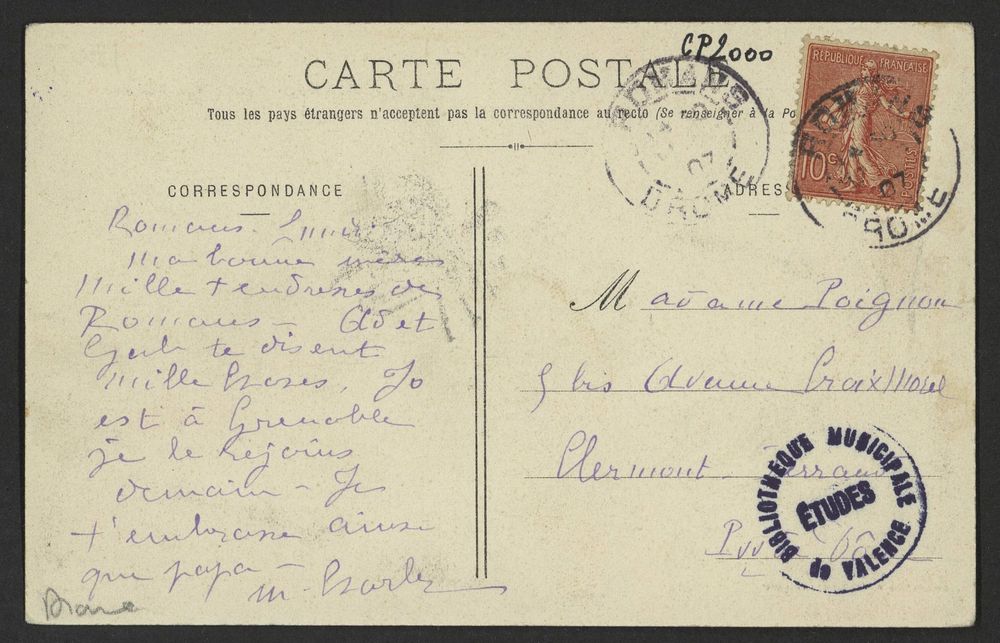 CP2000
CARTE POSTALE
Tous les pays étrangers n'acceptent pas la correspondance au recto (Se renseigner à la Po
RÉPUBLIQUE FRANÇAISE
10c
POSTES
ROMANS
07
DROME
ROMANS
07
DROME
CORRESPONDANCE
ADRES
Romans
Ma bonne mère
Mille tendresses de
Romans - Ad et
Gab te disent
mille choses. Jo
est à Grenoble
je le rejoins
demain - Je
t'embrasse ainsi
que papa -
M. Charles
Madame Poignon
5 bis Avenue Croix Morel
Clermont-Ferrand
Puy de Dôme
BIBLIOTHÈQUE MUNICIPALE
ÉTUDES
VALENCE
Drome